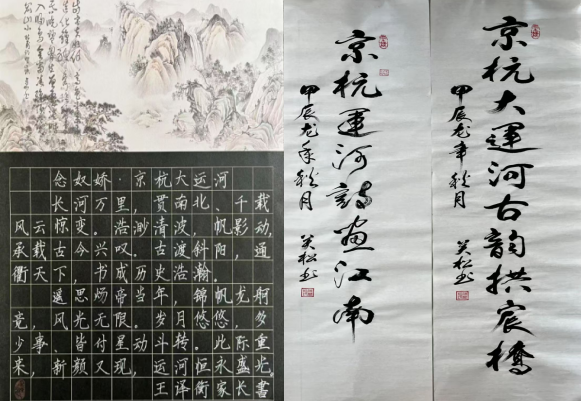 念奴娇·京杭大运河
长河万里，贯南北、千载
风云惊变。浩渺清波，帆影动，
承载古今兴叹。古渡斜阳，通
衢天下，书成历史浩瀚。
遥思炀帝当年，锦帆龙舸
竞，风光无限。岁月悠悠，多
少事、皆付星动斗转。此际重
来，新颜又现，运河恒永盛光。
王泽衡家长书
京杭运河诗画江南
甲辰龙年秋月
吴松书
京杭大运河古韵拱宸桥
甲辰龙年秋月
吴松书